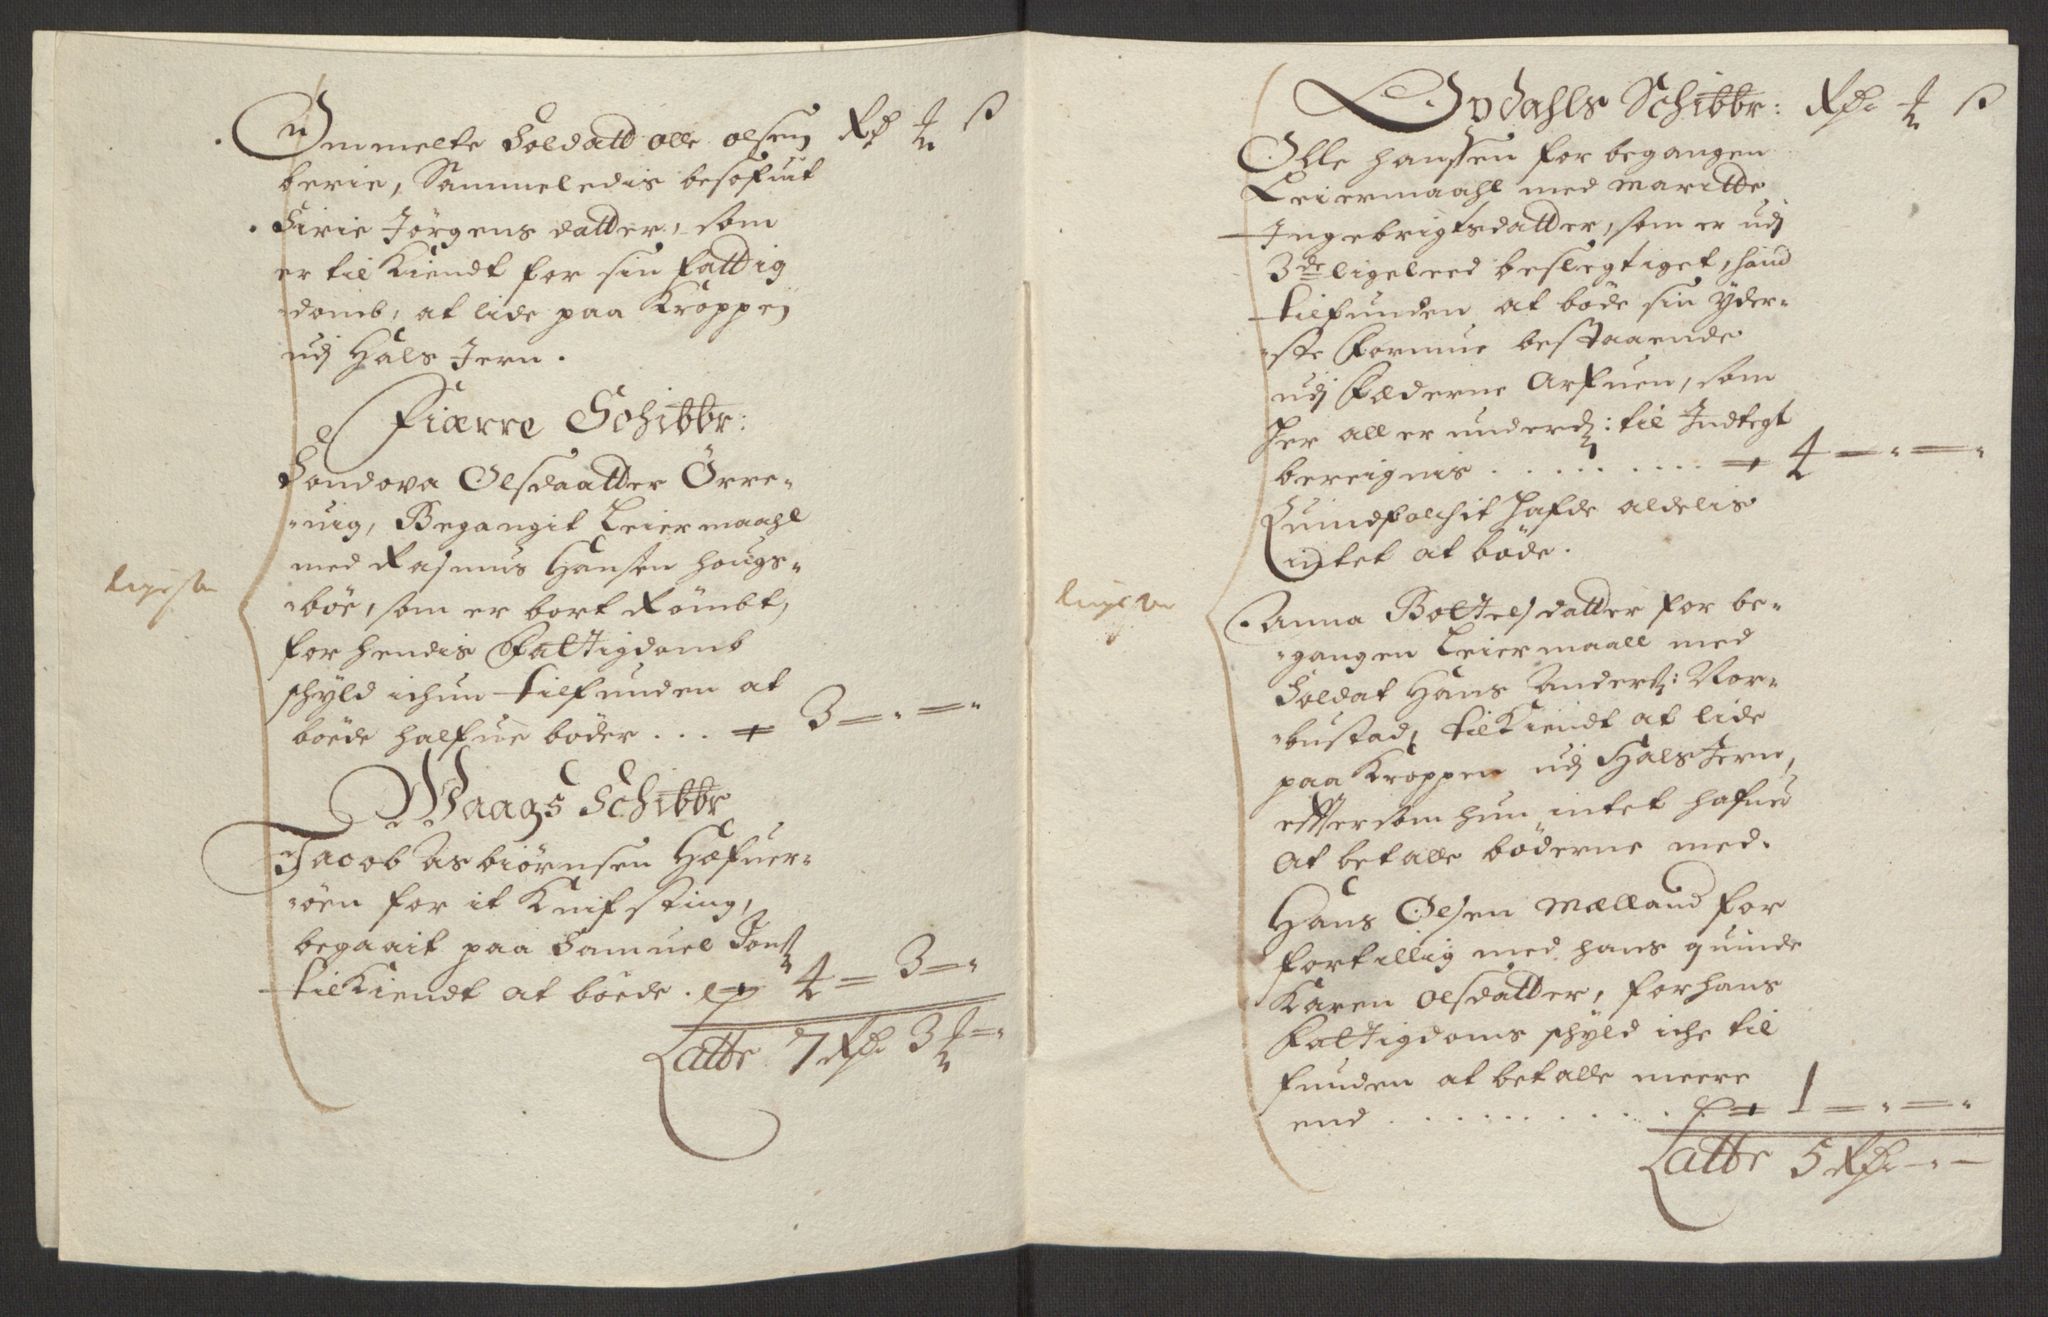 Ommelte Soldatt Olle Olsen Rdr ort ß
berie, Sammeledis besofuit
Sirie Jörgens datter, som
er tilkiendt for sin fattig
domb, at lide paa Kroppen
udj Hals Jern.
Fiærre Schibbr:
Sondova Olsdaatter Örre-
uig, Begangit Leiermaahl
med Rasmus Hansen Hougs-
böe, som er bort Römbt,
for hendis Fattigdomb
schyld ichun tilfunden at
böede halfue böder ... 3 - -
Waags Schibbr
Jacob Asbiörnsen Hæfuer-
öen for it Knifsting,
begaait paa Samuel Jonß:
tilkiendt at böede. 4 = 3 -
Latte 7 Rdr 3 ort -
Opdahls Schibbr: Rdr ort ß
Olle Hanssen for begangen
Leiermaahl med Maritte
Ingebrigtsdatter, som er udj
3de ligeleed beslegtiget, hand
tilfunden at böde sin yder-
ste Formue bestaaende
udj Fæderne Arfuen, som
her aller underd: til Indtegt
bereignis . . . . . 4 - -
Quindfolchit hafde aldelis
intet at böde.
Anna Boltelsdatter for be-
gangen Leiermaall med
Soldat Hans Anderß: Nor-
bustad, tilkiendt at lide
paa Kroppen udj Hals Jern,
effter som hun intet hafuer
at betalle böderne med.
Hans Olsen Mælland for
fortillig med hans quinde
Karen Olsdatter, for hans
Fattigdoms schyld iche til
funden at betalle meere
end . . . . . 1 - -
Latte 5 Rdr - -